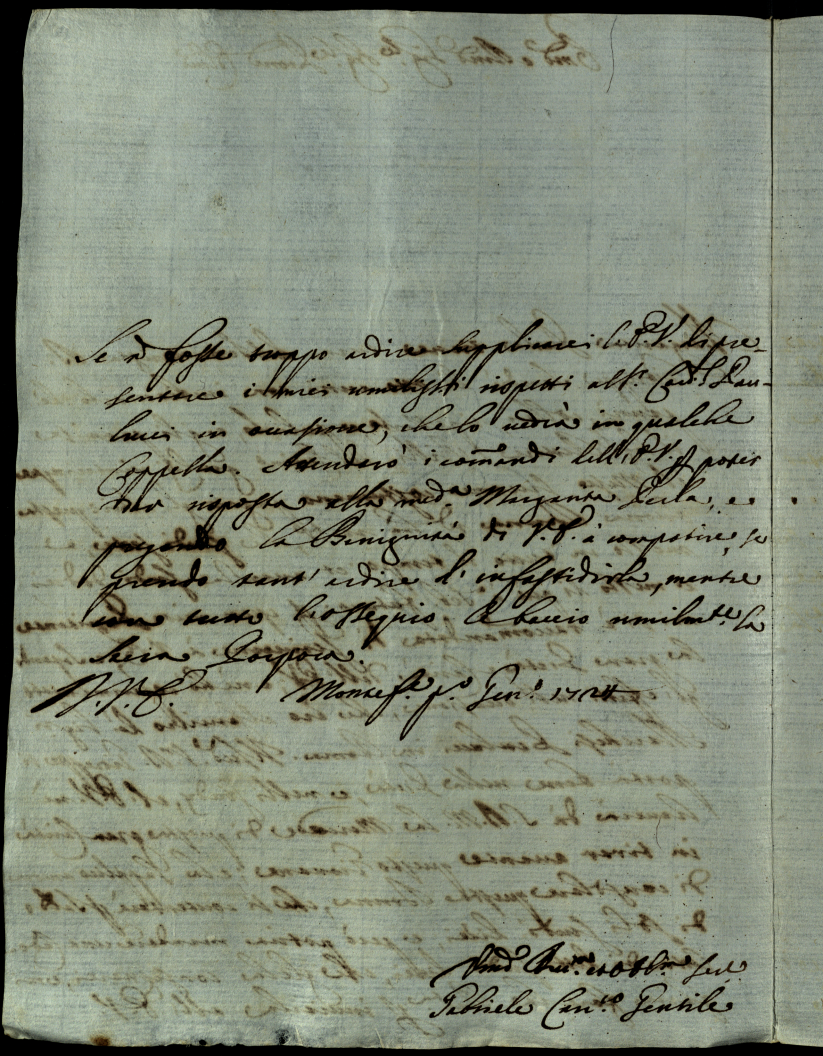 Se ñ fosse troppo ardire supplicarei l'E.V. di pre-
sentare i miei umilissmi rispetti all'E. Card. Pau-
lucci in occasione, che lo vedrà in qualche
Cappella. Attenderò i comandi dell'E.V. p poter
dar risposta alla med.a Margarita Perla, e
pregando la Benignità di V.E. à compatire, se
prendo tant'ardire d'infastidirla, mentre
con tutto l'ossequio le baccio umilm.te la
Sacra Porpora.
D.V.E. Montef.e p.o Gen.o 1724
Umo Devmo et Obbl.mo Ser.e
Gabriele Can.co Gentile